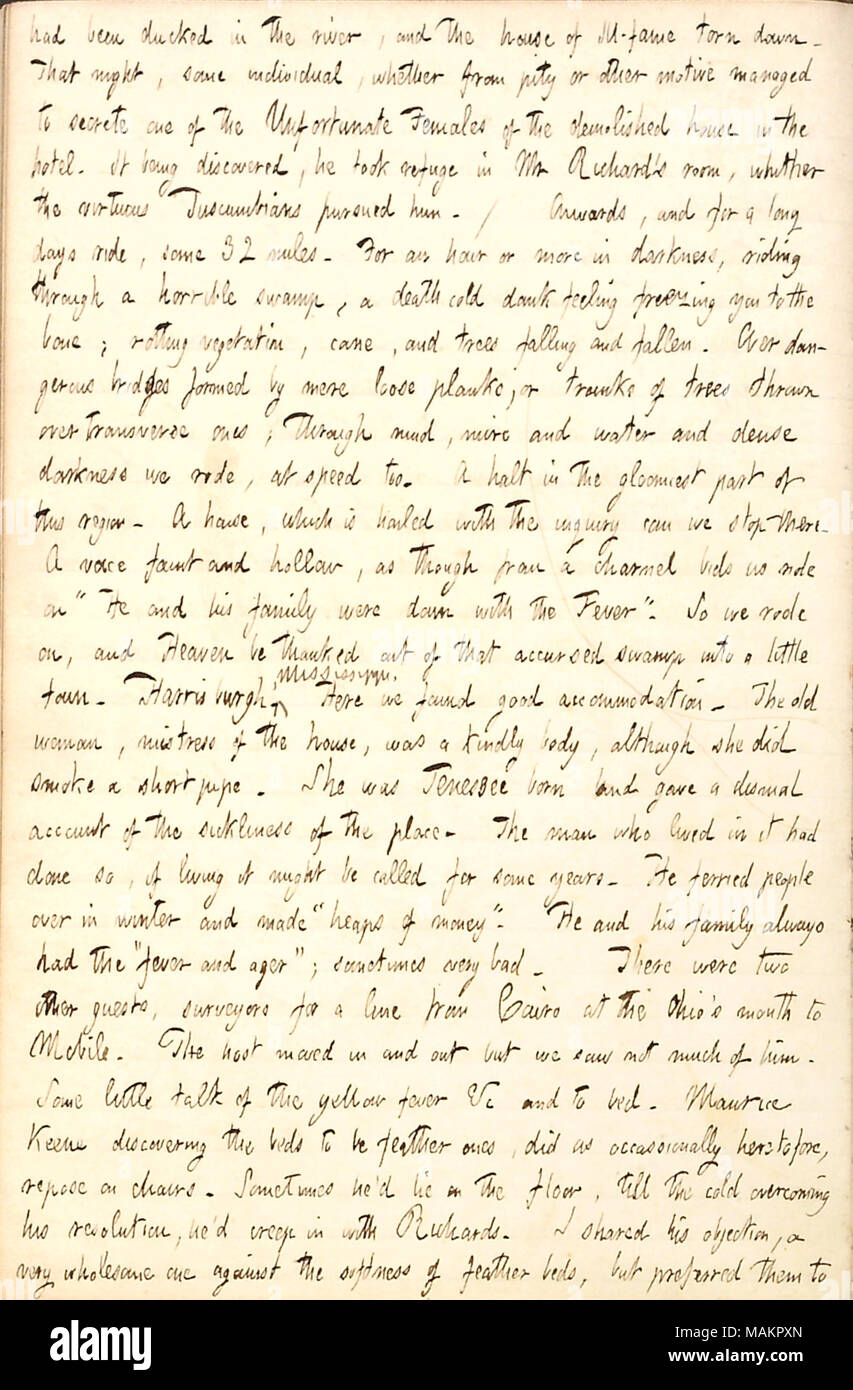 had been ducked in the river, and the house of ill-fame torn down.
That night, some individual, whether from pity or other motive managed
to secrete one of the Unfortunate Females of the demolished house in the
hotel. It being discovered, he took refuge in Mr Richard's room, whither
the virtuous Tuscumbians pursued him. / Onwards, and for a long
days ride, some 32 miles. For an hour or more in darkness, riding
through a horrible swamp, a death cold dank feeling freezing you to the
bone; rotting vegetation, cane, and trees falling and fallen. Over dan-
gerous bridges formed by mere loose planks, or trunks of trees thrown
over transverse ones; through mud, mire and water and dense
darkness we rode, at speed too. A halt in the gloomiest part of
this region. A house, which is hailed with the inquiry can we stop there.
A voice faint and hollow, as though from a charnel bids us ride
on "He and his family were down with the Fever". So we rode
on, and Heaven be thanked out of that accursed swamp into a little
Mississippi.
town. Harrisburgh, Here we found good accommodation. The old
woman, mistress of the house, was a kindly body, although she did
smoke a short pipe. She was Tenessee born and gave a dismal
account of the sickliness of the place. The man who lived in it had
done so, if living it might be called for some years. He ferried people
over in winter and made "heaps of money". He and his family always
had the "fever and ager"; sometimes very bad. There were two
other guests, surveyors for a line from Cairo at the Ohio's mouth to
Mobile. The host moved in and out but we saw not much of him.
Some little talk of the yellow fever &c and to bed. Maurice
Keene discovering the beds to be feather ones, did as occassionally heretofore,
repose on chairs. Sometimes he'd lie on the floor, till the cold overcoming
his resolution, he'd creep in with Richards. I shared his objection, a
very wholesome one against the softness of feather beds, but preferred them to
alamy
Image ID: MAKPXN
www.alamy.com